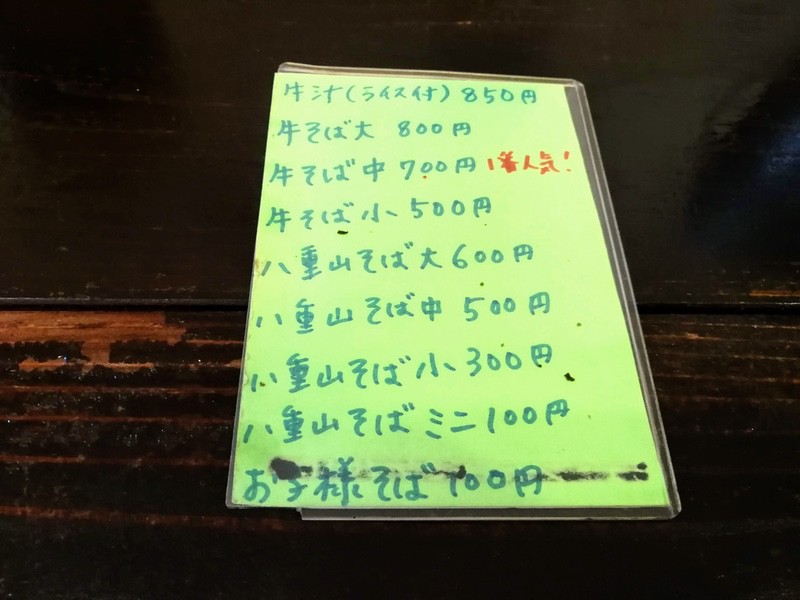 牛汁(ライス付) 850円
牛そば大 800円
牛そば中 700円 1番人気!
牛そば小 500円
八重山そば大 600円
八重山そば中 500円
八重山そば小 300円
八重山そばミニ 100円
お子様そば 100円